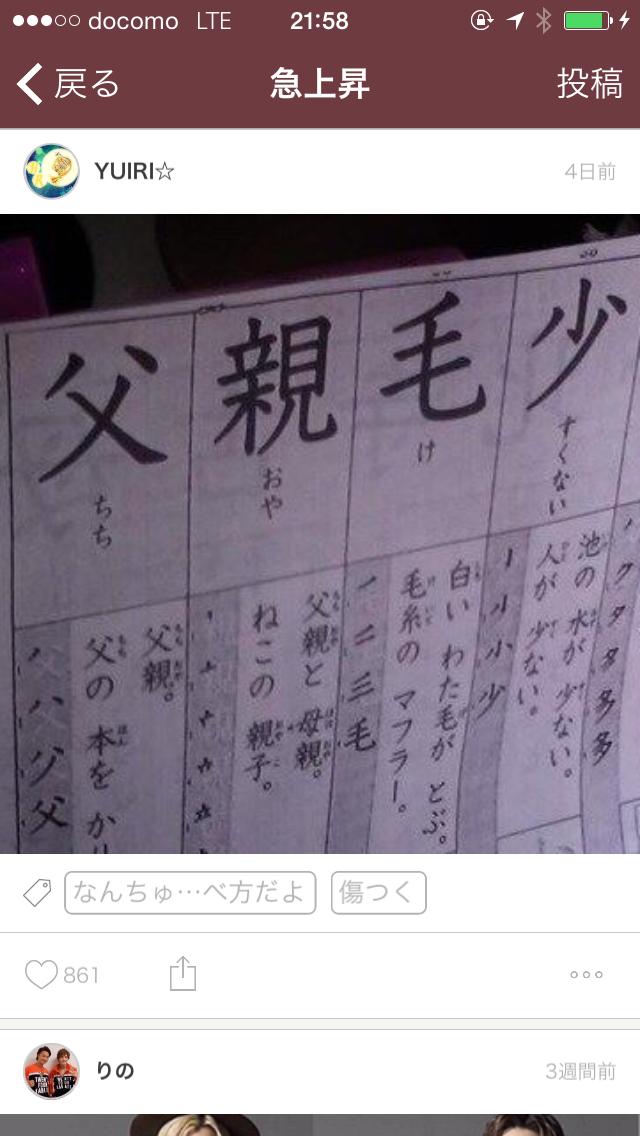 docomo LTE 21:58
戻る 急上昇 投稿
YUIRI☆ 4日前
少
すくない
池の 水が 少ない。
人が 少ない。
毛
け
白い わた毛が とぶ。
毛糸の マフラー。
親
おや
父親と 母親。
ねこの 親子。
父
ちち
父親。
父の 本を か
なんちゅ…べ方だよ 傷つく
861
りの 3週間前